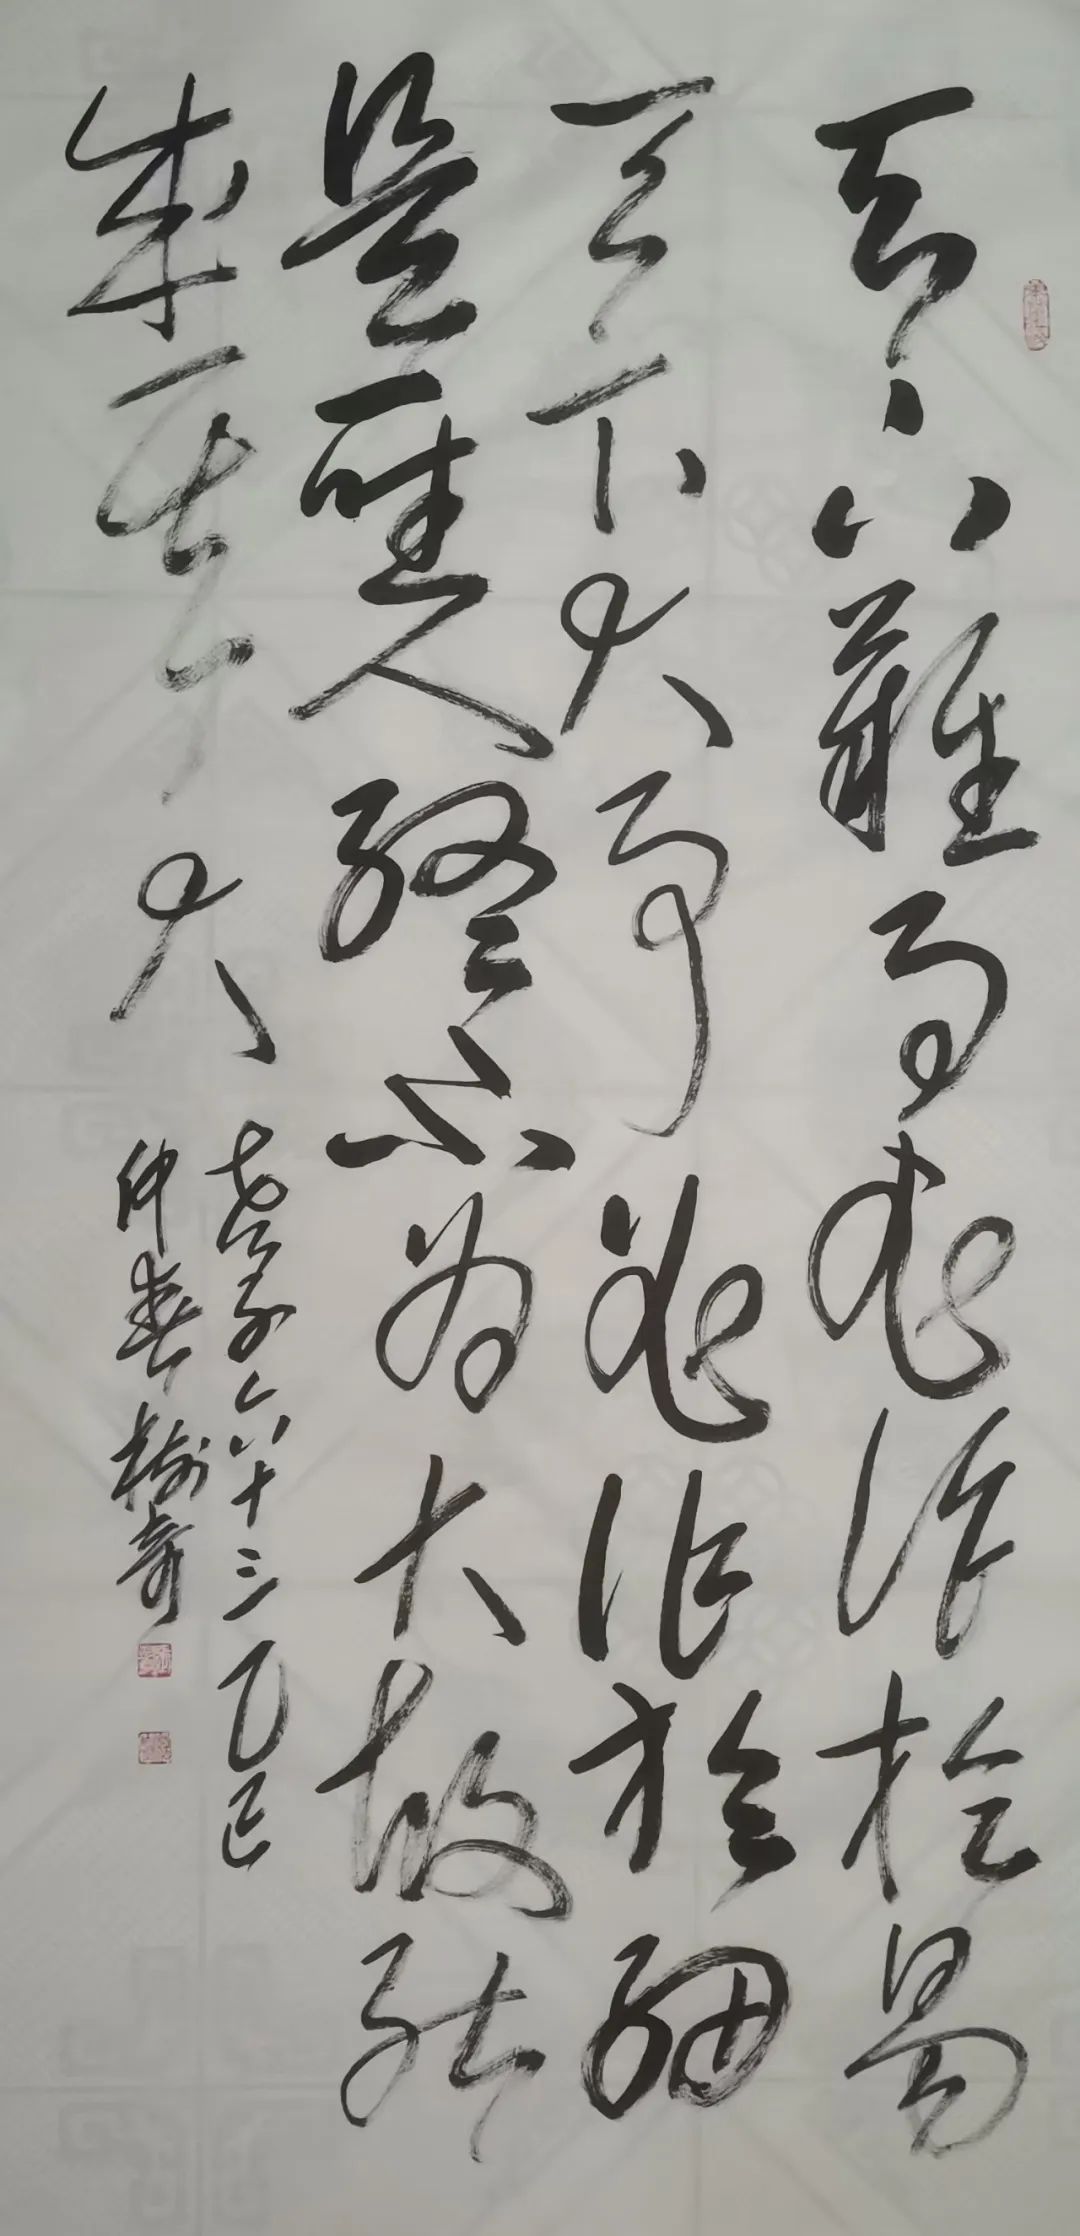 天下難事必作於易
天下大事必作於細
是聖人終不為大故能
成其大
老子六十三乙巳
仲春樹奇